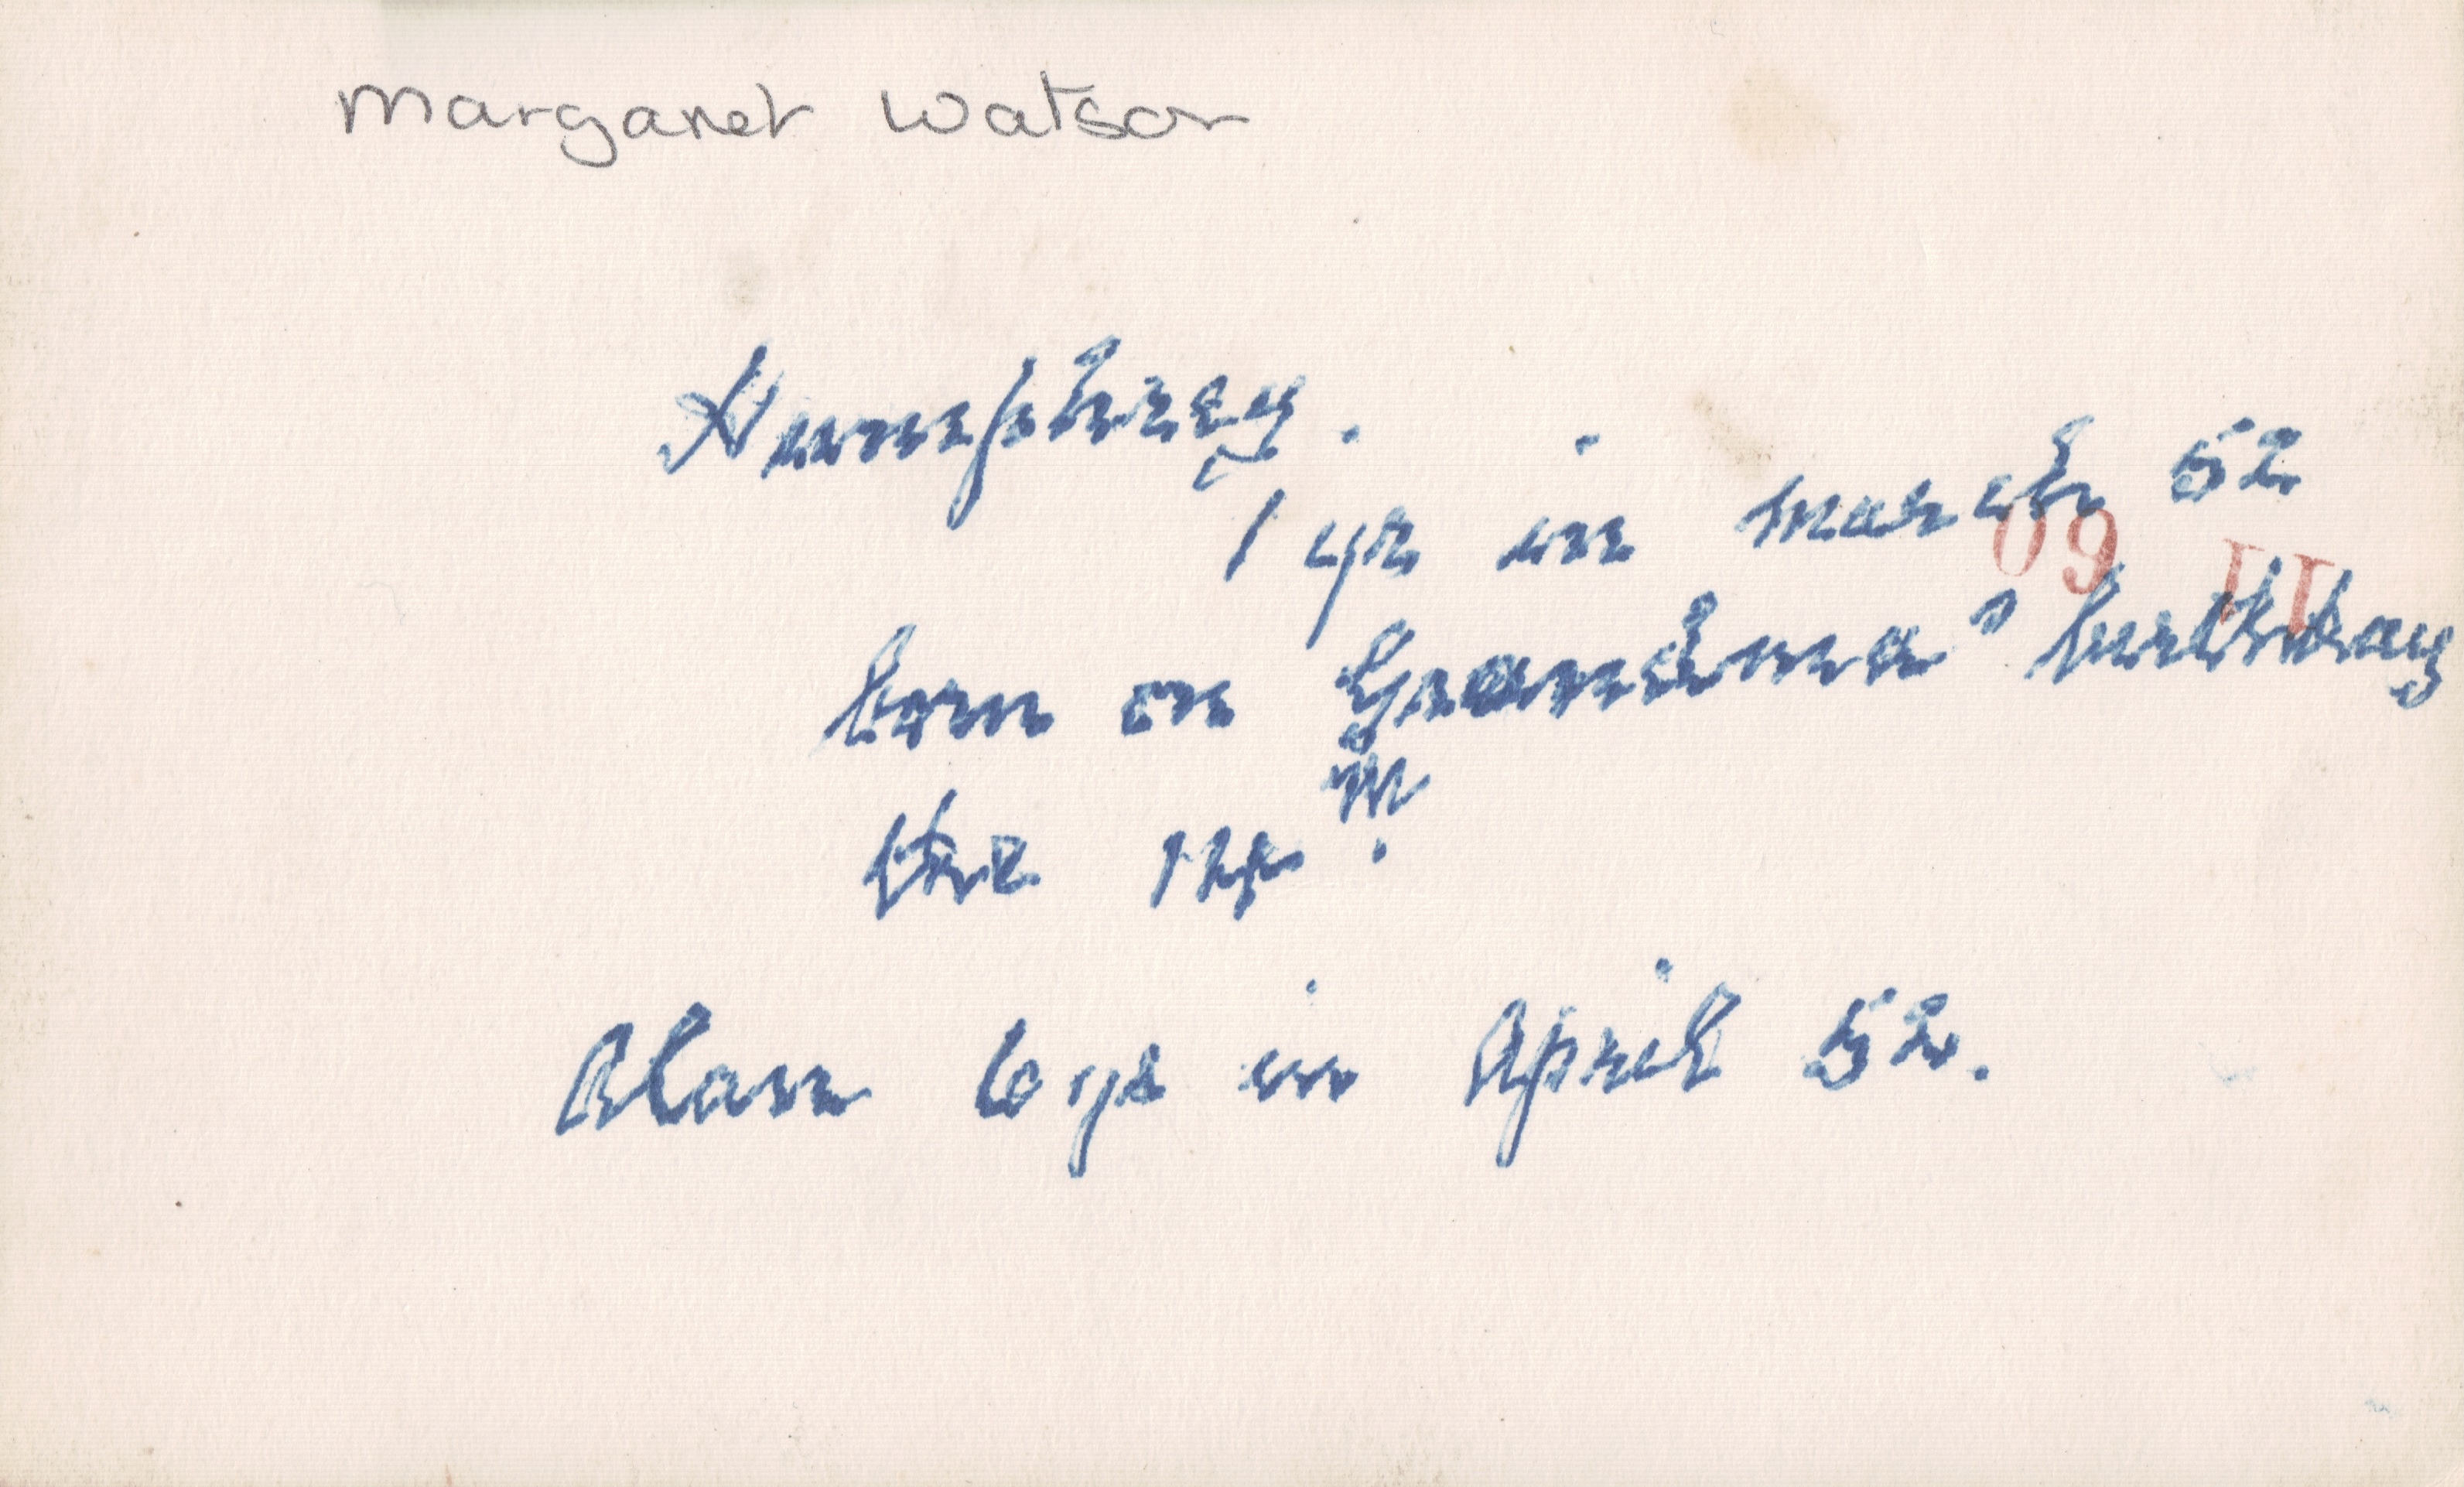 Margaret Watson
Humphrey.
1 yr in march 52
09 11
born on Grandma's birthday
the 14th.
Alan 6 yrs in April 52.